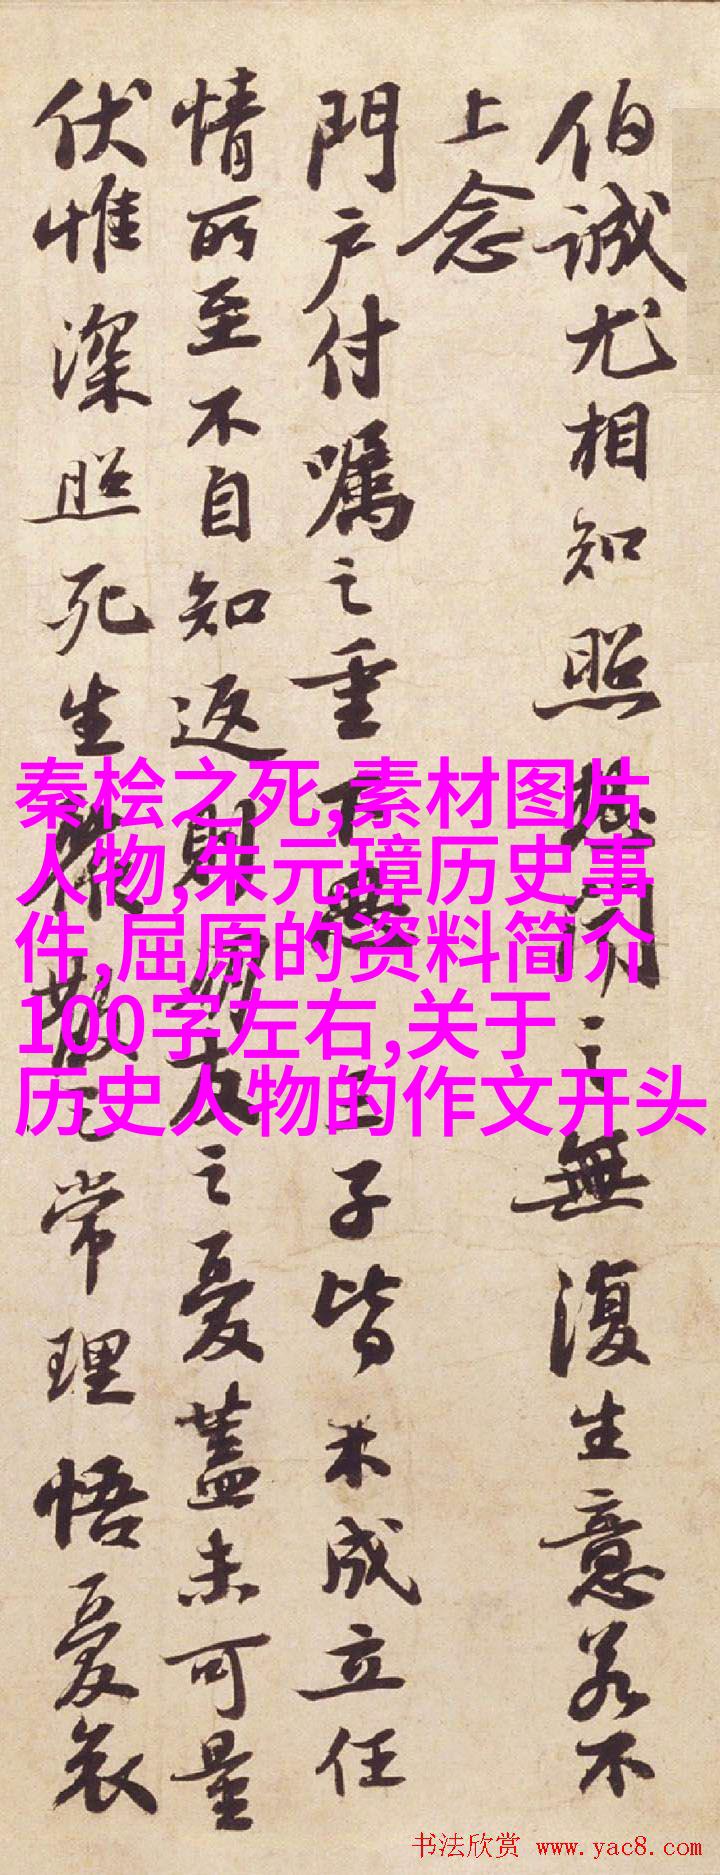 伯誠尤相知照想聞之無復生意若不
上念
門戶付囑之重下三子皆未成立任
情所至不自知返則朋友之憂蓋未可量
伏惟深照死生聚散之常理悟憂哀
秦桧之死,素材图片
人物,朱元璋历史事
件,屈原的资料简介
100字左右,关于
历史人物的作文开头
书法欣赏 www.yac8.com